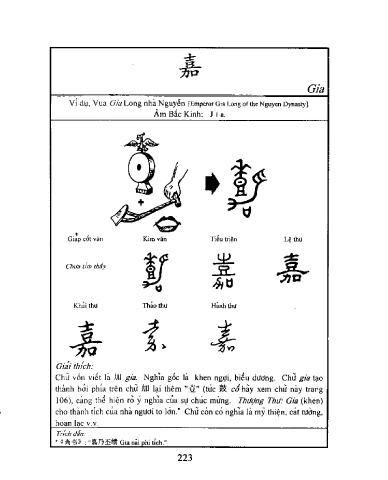 嘉
Gia
Ví dụ, Vua Gia Long nhà Nguyễn [Emperor Gia Long of the Nguyen Dynasty].
Âm Bắc Kinh: Jia.
+
Giáp cốt văn Kim văn Tiểu triện Lệ thư
Chưa tìm thấy 嘉 嘉
Khải thư Thảo thư Hành thư
嘉 嘉
Giải thích:
Chữ vốn viết là 加 gia. Nghĩa gốc là khen ngợi, biểu dương. Chữ gia tạo
thành bởi phía trên chữ 加 lại thêm "壴" (tức 鼓 cổ hãy xem chữ này trang
106), càng thể hiện rõ ý nghĩa của sự chúc mừng. Thượng Thư: Gia (khen)
cho thành tích của nhà ngươi to lớn.* Chữ còn có nghĩa là mỹ thiện, cát tường,
hoan lạc v.v.
Trích dẫn:
*《尚书》: "嘉乃丕绩 Gia nãi phi tích."
223